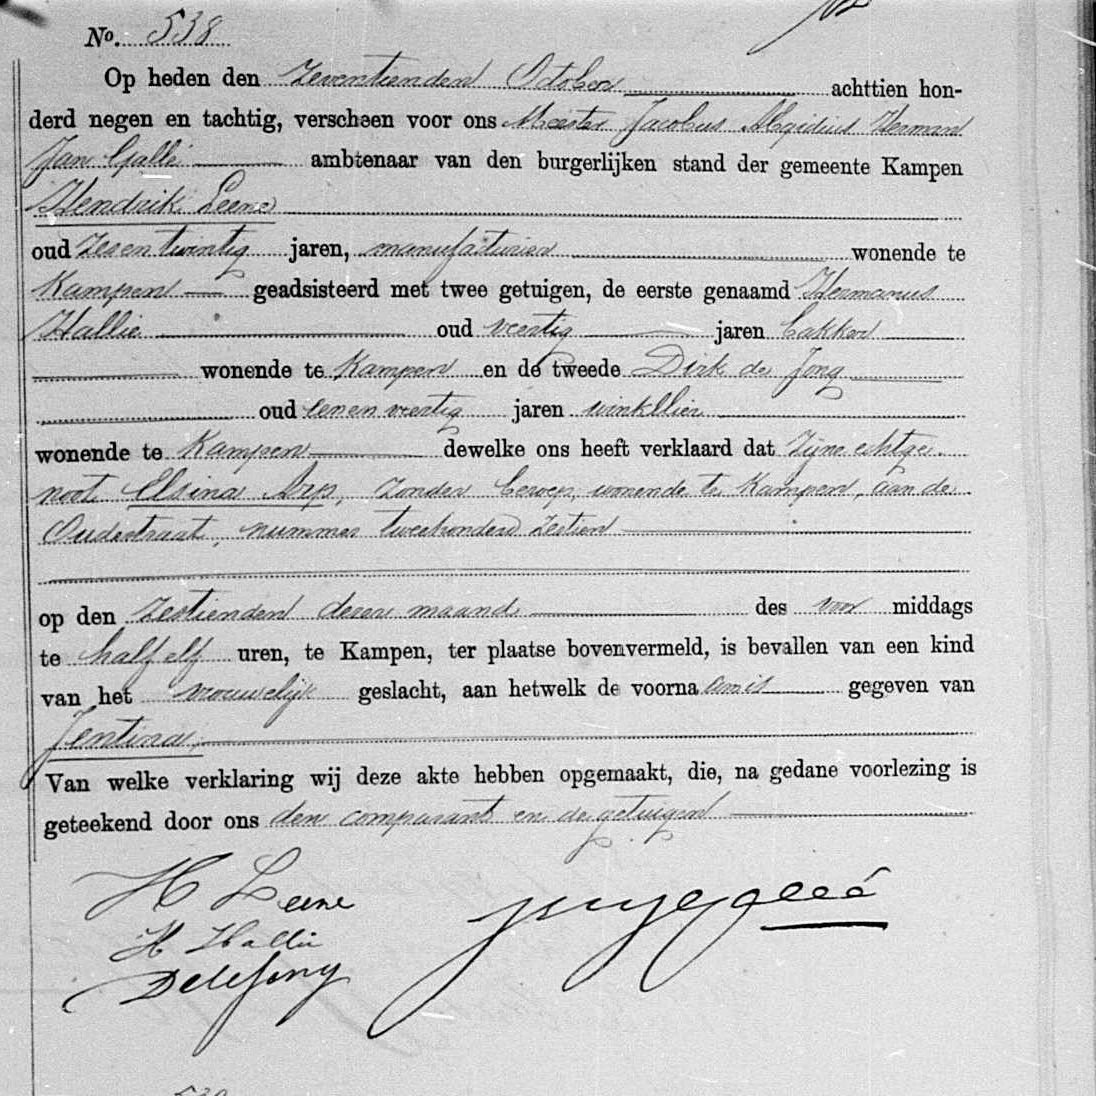 No. 538
Op heden den Zeventienden October achttien hon-
derd negen en tachtig, verscheen voor ons Meester Jacobus Aegidius Herman
Jan Gallé ambtenaar van den burgerlijken stand der gemeente Kampen
Hendrik Leene
oud Zesentwintig jaren, manufacturier wonende te
Kampen geadsisteerd met twee getuigen, de eerste genaamd Hermanus
Hallie oud veertig jaren bakker
wonende te Kampen en de tweede Dirk de Jong
oud eenenveertig jaren winkelier
wonende te Kampen dewelke ons heeft verklaard dat Zijne echtge-
noot Elsina Arp, zonder beroep, wonende te Kampen, aan de
Oudestraat, nummer tweehonderd zestien
op den Zestienden dezer maand des voor middags
te half elf uren, te Kampen, ter plaatse bovenvermeld, is bevallen van een kind
van het vrouwelijk geslacht, aan hetwelk de voorna am is gegeven van
Jentina,
Van welke verklaring wij deze akte hebben opgemaakt, die, na gedane voorlezing is
geteekend door ons den comparant en de getuigen
H Leene
H Hallie
D de Jong